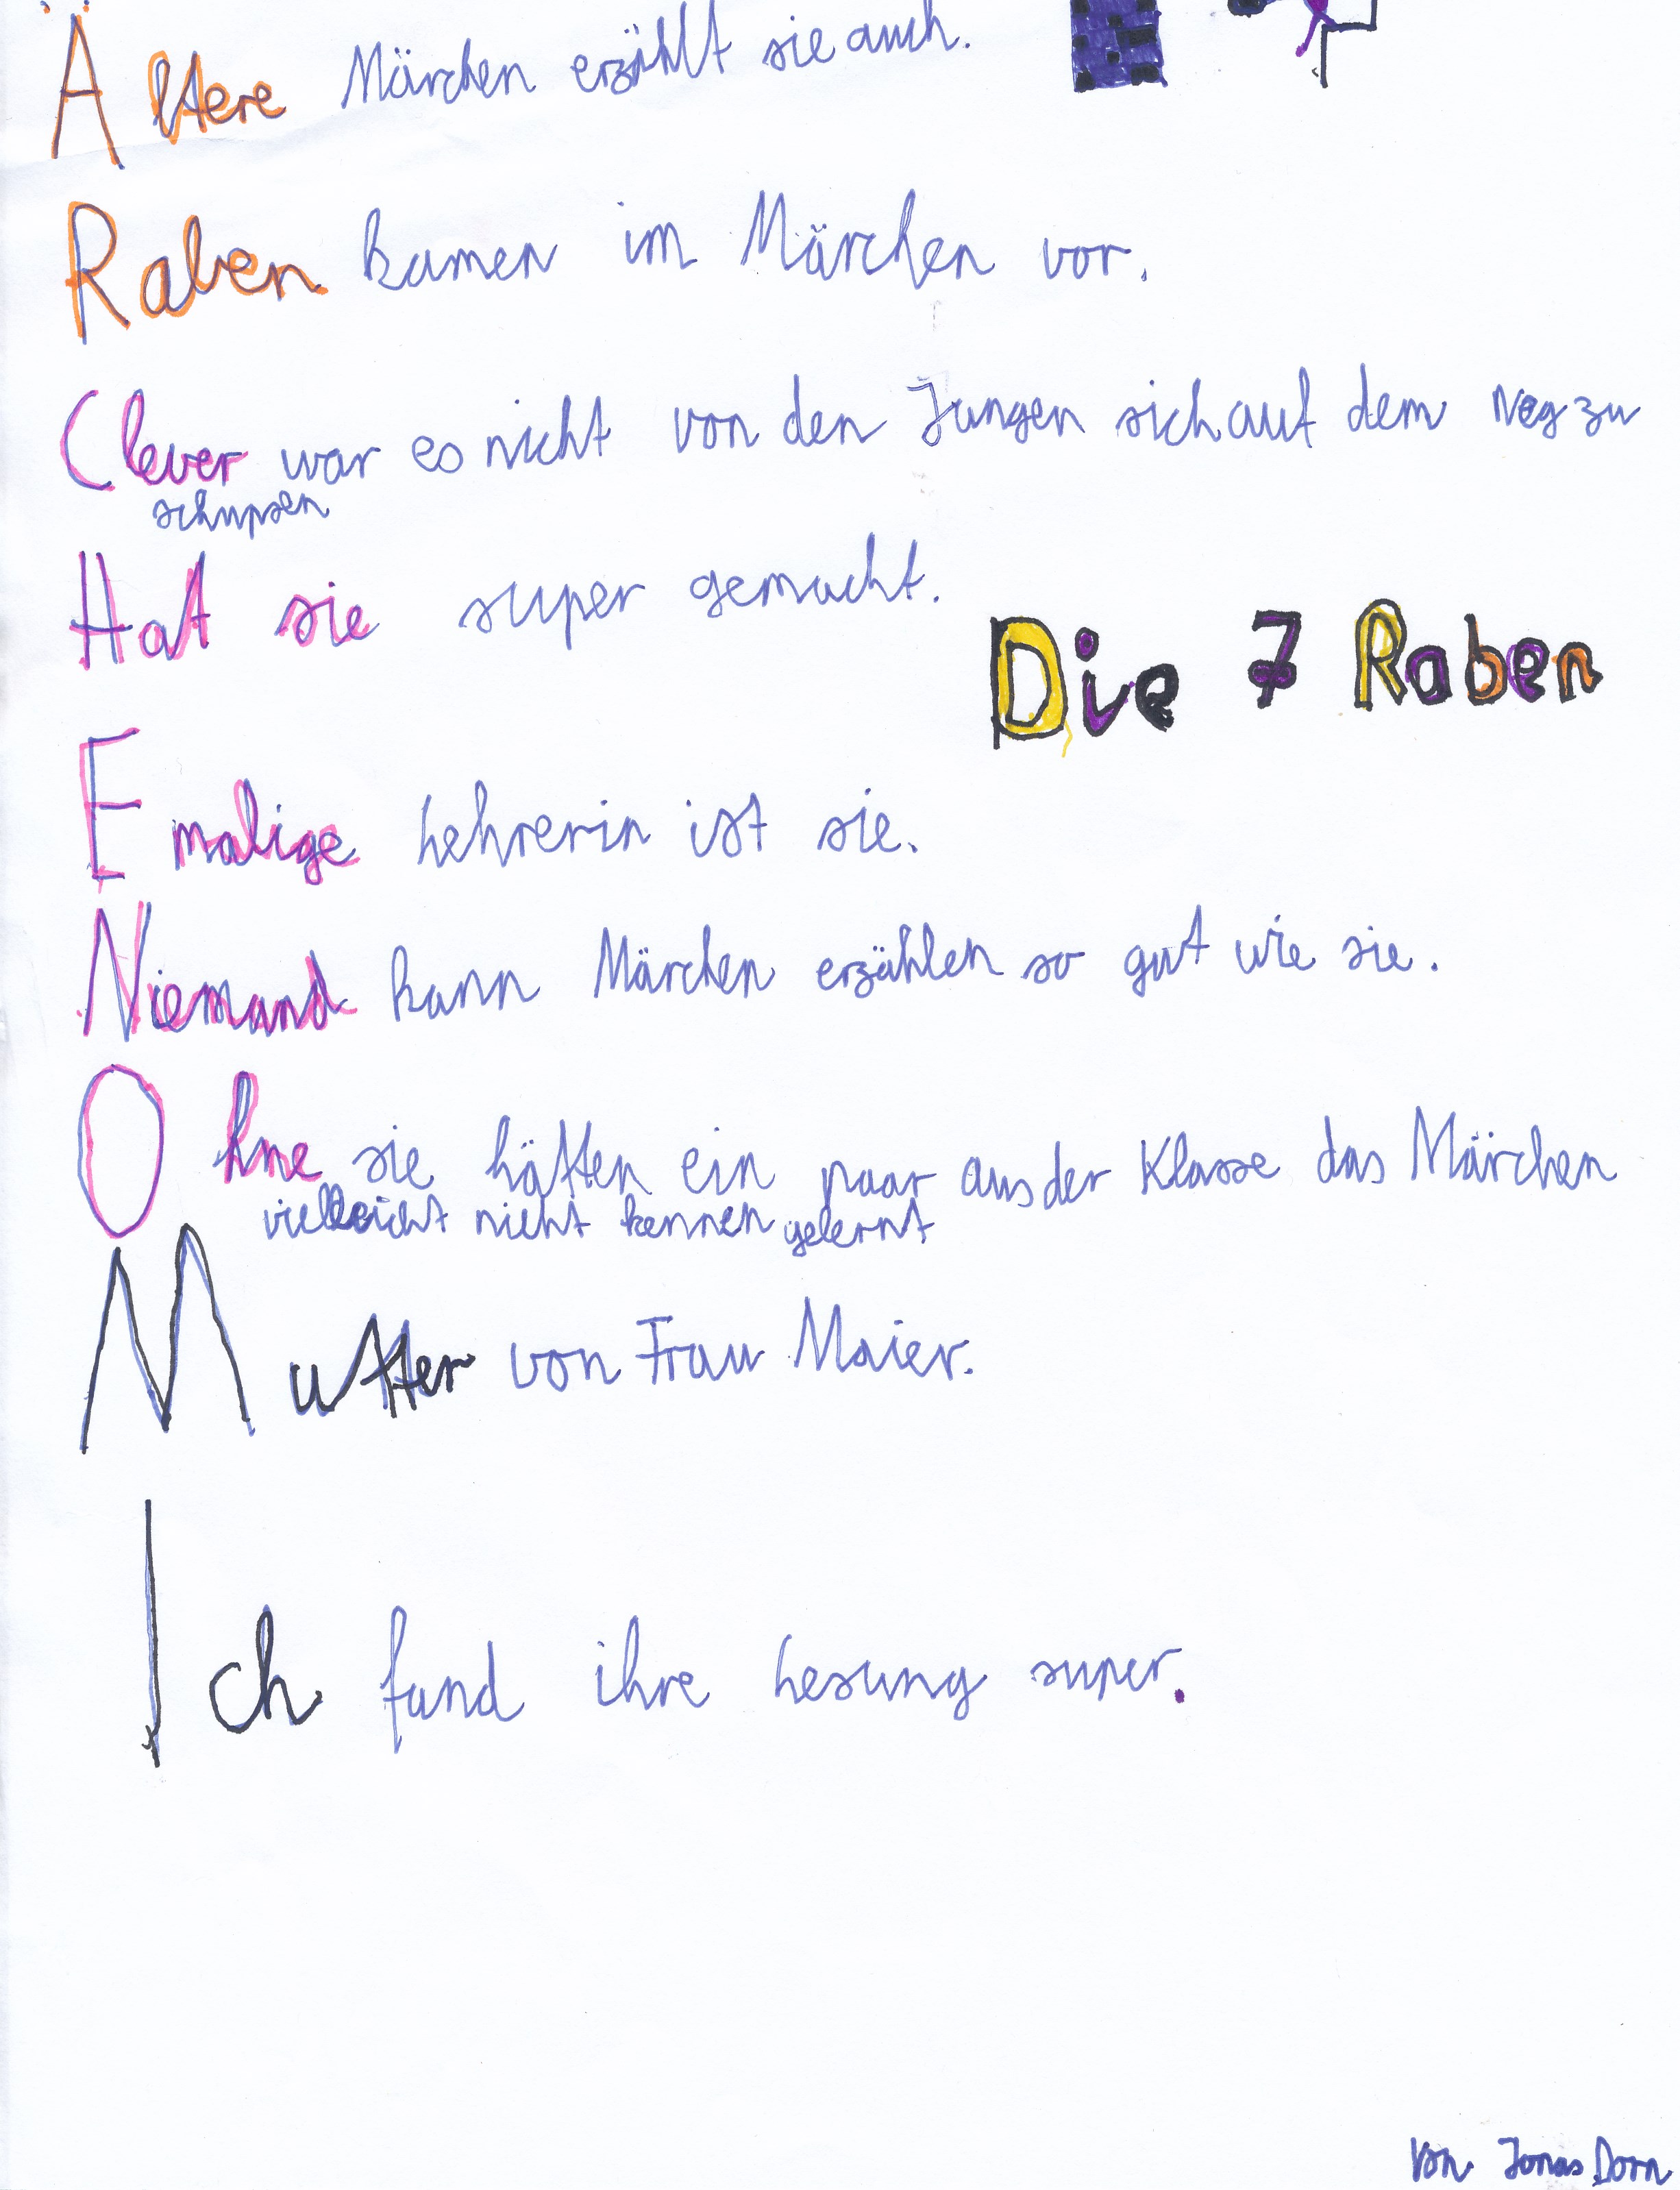 Ältere Märchen erzählt sie auch.
Raben kamen im Märchen vor.
Clever war es nicht von den Jungen sich auf dem Weg zu
schupsen
Hat sie super gemacht.
Die 7 Raben
Emalige Lehrerin ist sie.
Niemand kann Märchen erzählen so gut wie sie.
Ohne sie hätten ein paar aus der Klasse das Märchen
vielleicht nicht kennen gelernt
Mutter von Frau Maier.
Ich fand ihre Lesung super.
Von Jonas Dorn